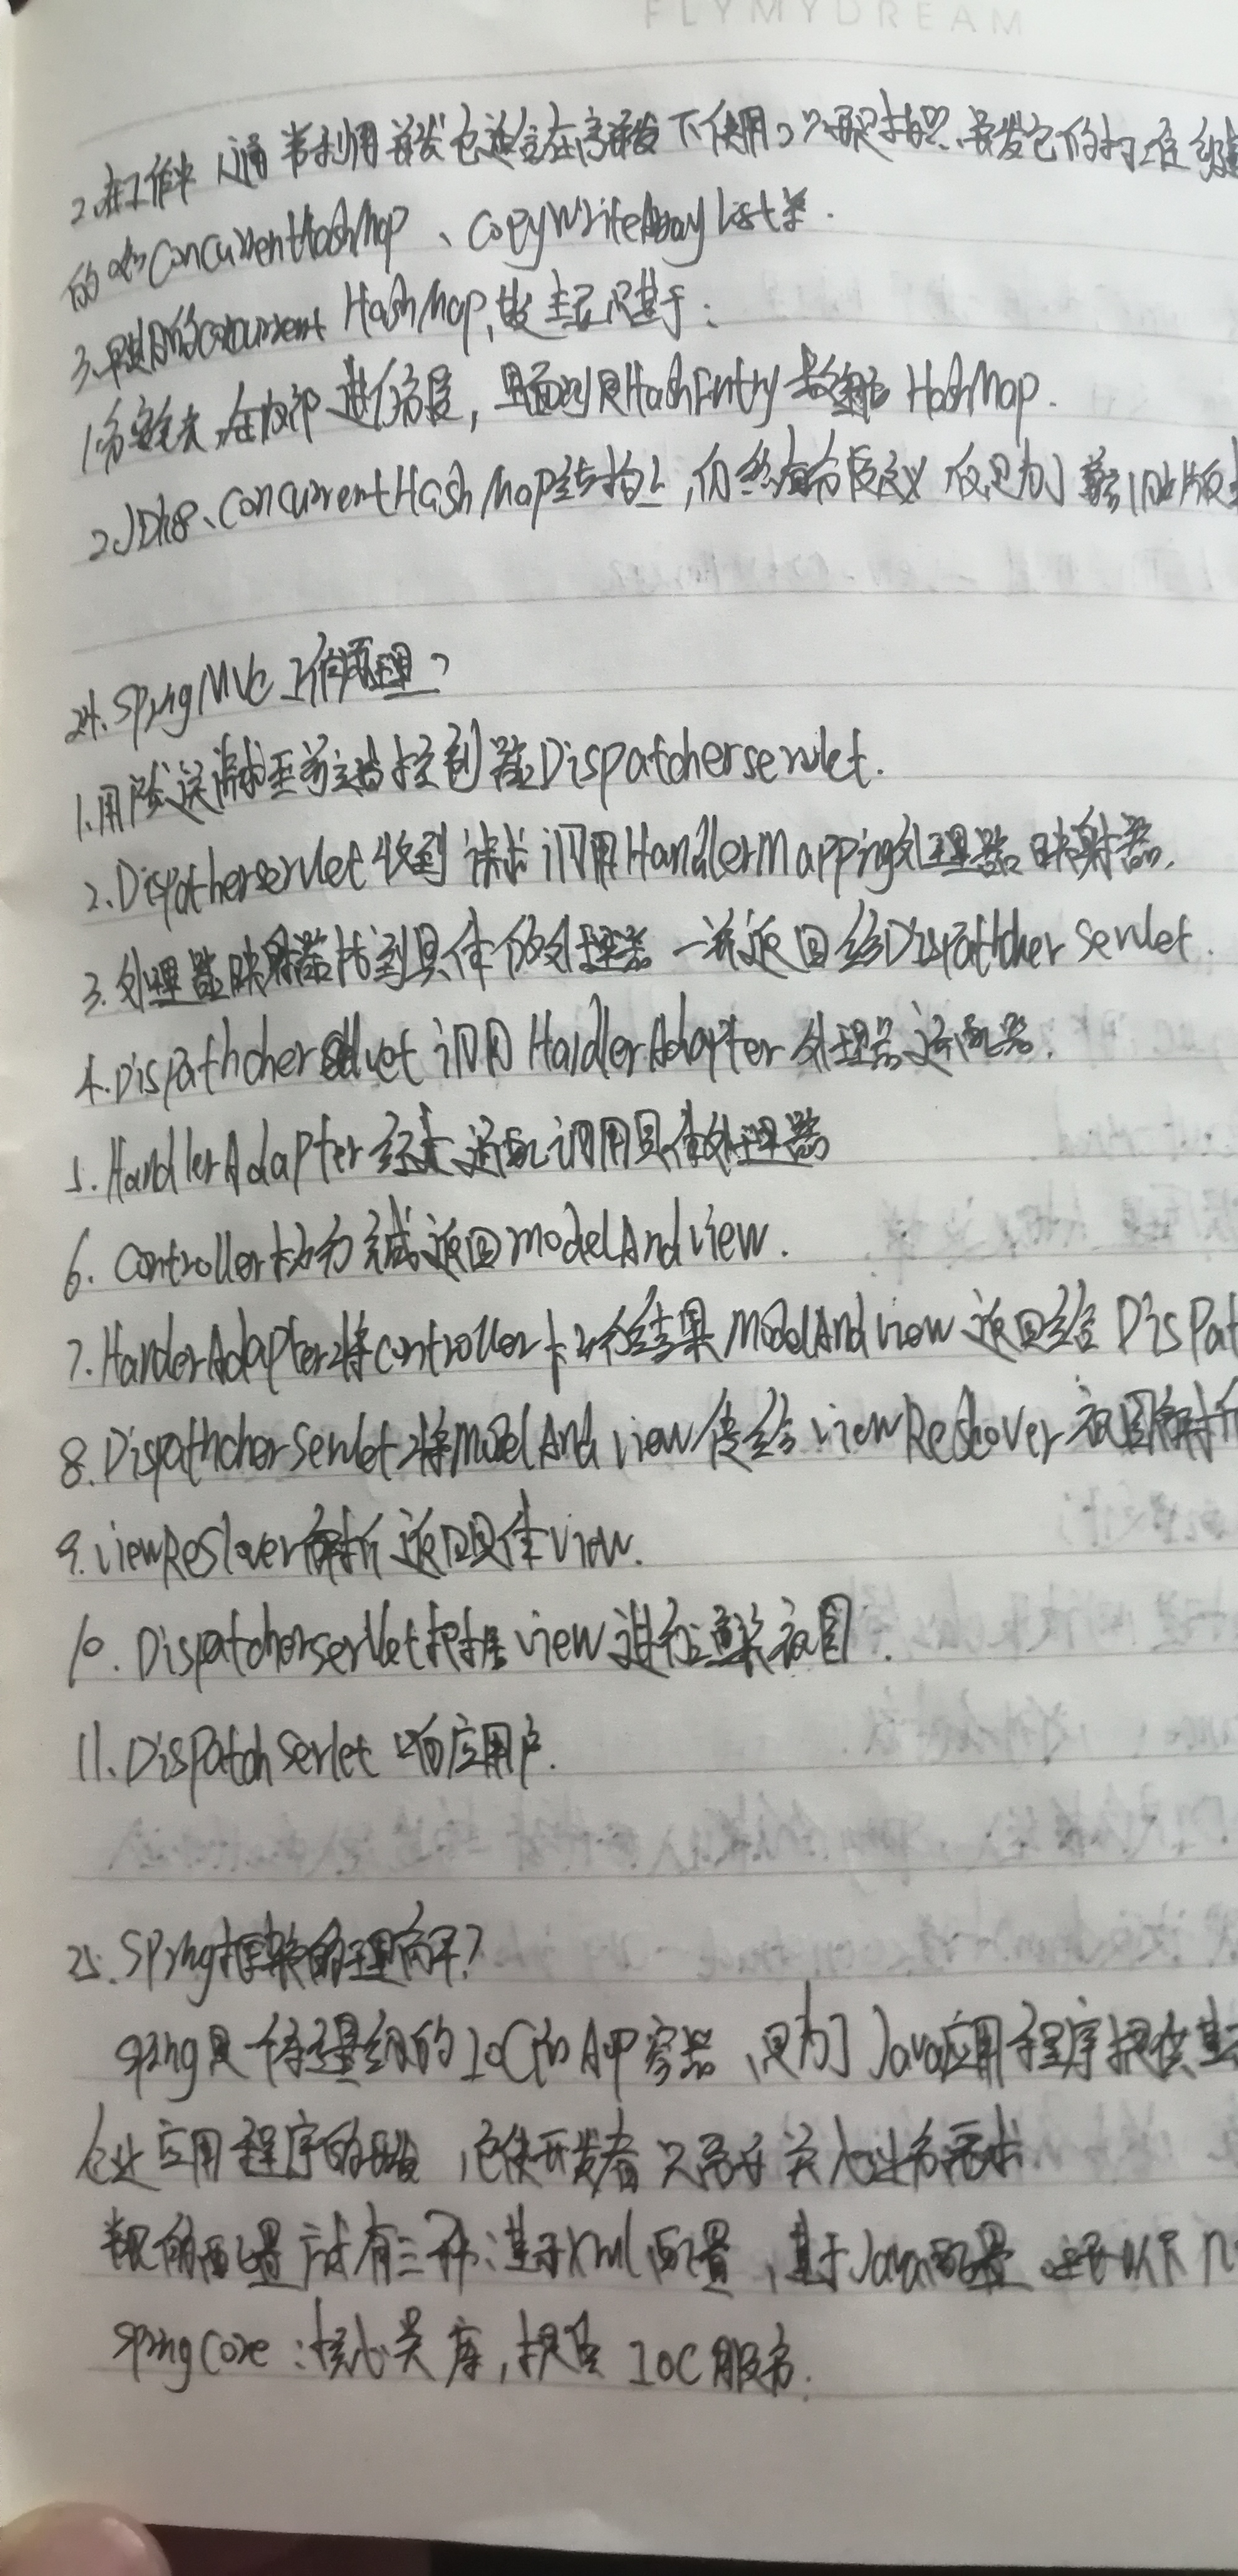 FLYMYDREAM
2.在工作中,通常利用并发包
的如ConcurrentHashMap、CopyWriteArrayList等.
3.早期的Concurrent HashMap,其主要是基于:
1.分离锁,在内部进行分段,里面则是HashEntry数组 HashMap.
2.JDK8、ConcurrentHashMap结构上,仍然有分段定义 仅是为了
24.SpringMVC工作原理?
1.用户发送请求至前端控制器Dispatcherservlet.
2.Dispatherservlet收到请求调用HandlerMapping处理器映射器.
3.处理器映射器找到具体的处理器 一并返回给Dispathcher Servlet.
4.Dispathcher 调用HandlerAdapter处理器适配器.
5.HandlerAdapter经过适配调用具体处理器
6.Controller执行完成返回modelAndView.
7.HanderAdapter将controller执行结果ModelAndView返回给DisPat
8.DispathcherServlet将ModelAndView传给ViewReslover视图解析
9.ViewReslover解析返回具体View.
10.Dispatcherservlet根据View进行渲染视图.
11.DisPatchSerlet响应用户.
25.Spring框架的理解?
Spring是一个轻量级的IOC和AOP容器,是为了Java应用程序提供基
企业应用程序的开发,它使开发者只需要关心业务需求
常见的配置方式有三种:基于Xml配置,基于Java配置
SpringCore:核心类库,提供IOC服务.